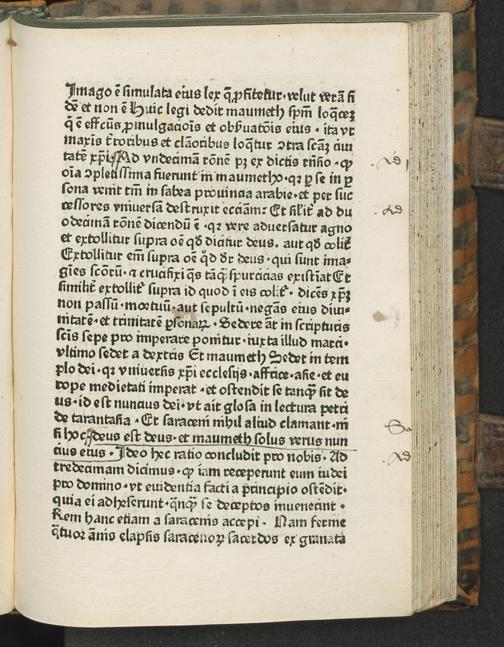 Imago ē simulata eius lex q̄ ꝓfitetur · velut verā fi
dē et non ē Huic legi dedit maumeth spm̄ loq̄ceꝝ
q̇ ē effc̄us ꝓmulgaciois et obẜuatōis eius · ita vt
maxīs t̄roribus et clāoribus loq̄tur ↄtra scāꝝ ciui
tatē xp̄i Ad vndecimā rōnē pꝫ ex dictis · qꝫ
oīa ↄpletissima fuerunt in maumetho · qꝛ ꝑ se in ꝑ
sona venit tm̄ in sabea prouincia arabie · et per suc
cessores vniuersā destruxit eccl̄iam: Et silit̄ ad du
odecimā rōnē dicendū ē · qꝛ vere aduersatur agno
et extollitur supra oē qd̄ dicitur deus. aut qd̄ colit̄
Extollitur em̄ supra oē qd̄ dr̄ deus · qui sunt ima-
gīes scōꝝ · ⁊ crucifixi q̄s tāq̄ spurcicias existiat Et
similit̄ extollit̄ supra id quod ī eis colit̄ · dicēs xp̄ꝫ
non passū · mortuū · aut sepultū · negās eius diui-
nitatē · et trinitatē ꝑsonaꝝ · Sedere āt in scripturis
scīs sepe pro imperare ponitur · iuxta illud marci ·
vltimo sedet a dextris Et maumeth Sedet in tem
plo dei · qꝛ vniuersis xp̄i ecclesijs · affrice · asie · et eu
rope medietati imperat · et ostendit se tanq̄ſ sit de
us · id est nuncius dei · vt ait glosa in lectura petri
de tarantasia · Et saraceni nihil aliud clamant · ni
si hoc deus est deus · et maumeth solus verus nun
cius eius · Ideo hec ratio concludit pro nobis · Ad
tredecimam dicimus · qꝫ iam receperunt eum iudei
pro domino · vt euidentia facti a principio ostēdit ·
quia ei adheserunt · q̄nqꝫ se deceptos inuenerint ·
Rem hanc etiam a saracenis accepi · Nam ferme
q̄tuor ānis elapsis saracenoꝝ sacerdos ex granata